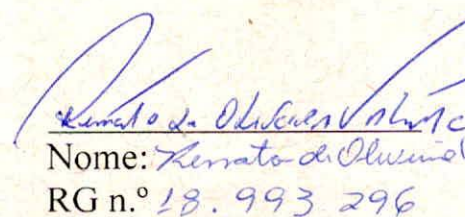 Renato de Oliveira
Nome: Renato de Oliveira
RG n.º 18.993 296